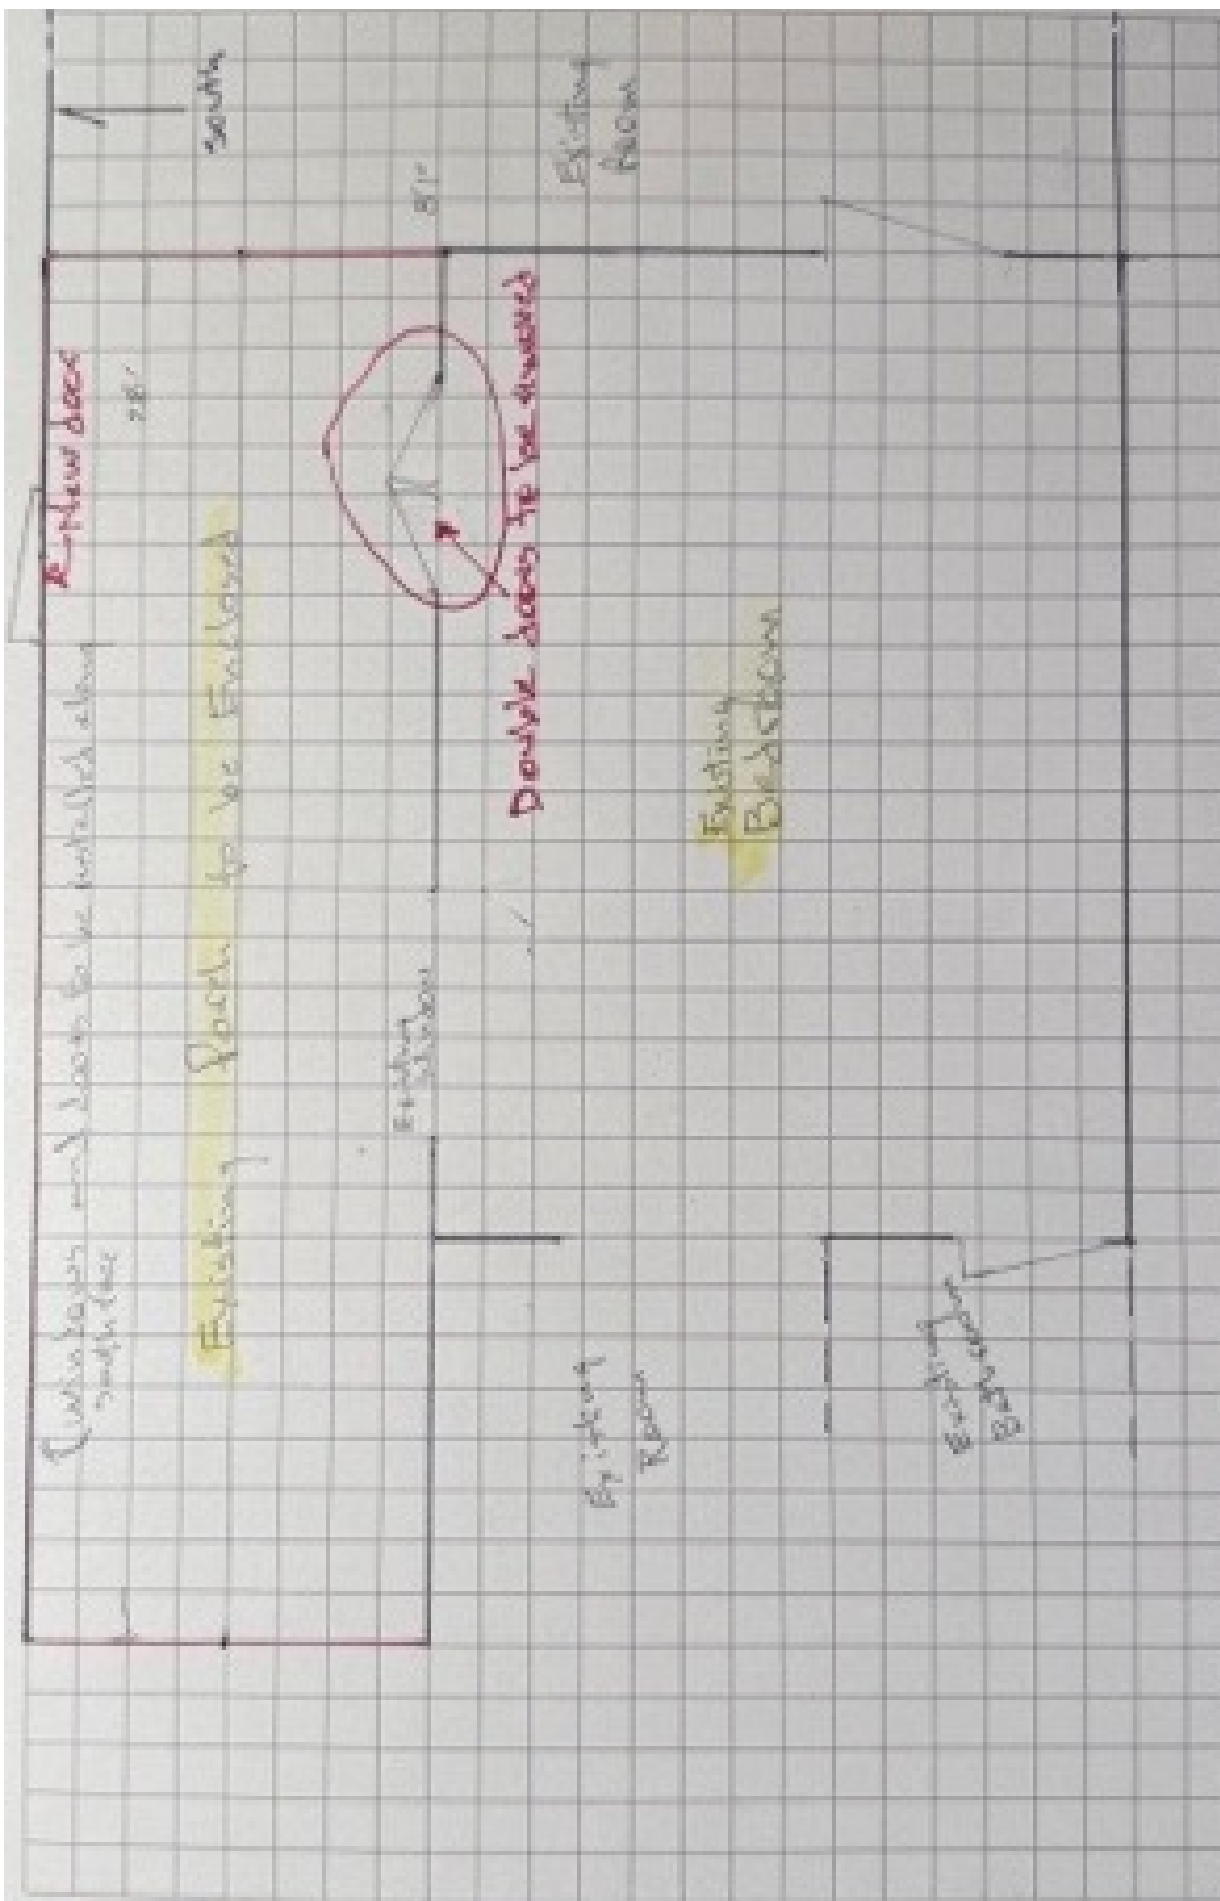 South
Existing
Room
8'
28'
New door
Windows and doors to be installed along
south face
Existing Porch to be Enclosed
Double doors to be removed
Existing
Window
Existing
Bedroom
Existing
Room
Existing
Bathroom